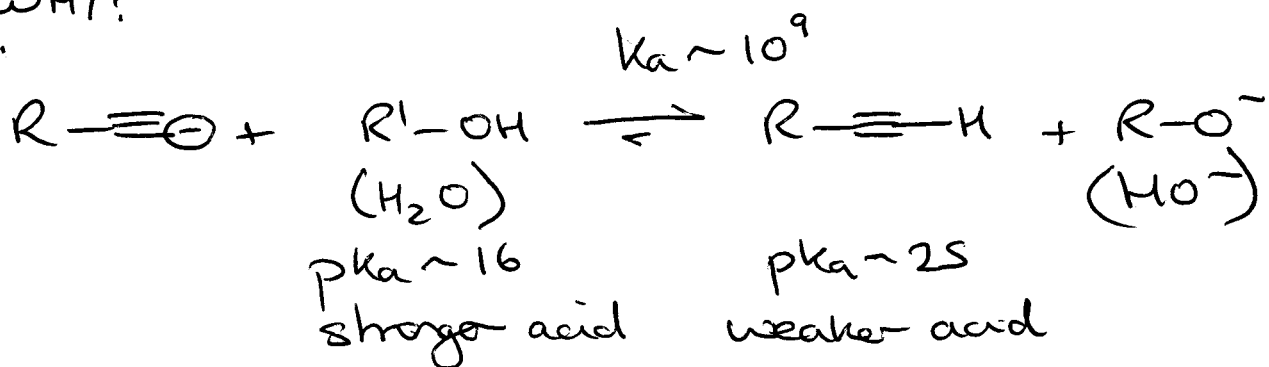 WHY?
Ka ~ 10⁹
R-≡⊖ + R'-OH ⇌ R-≡-H + R-O⁻
(H₂O) (HO⁻)
pKa ~ 16 pKa ~ 25
stronger acid weaker acid